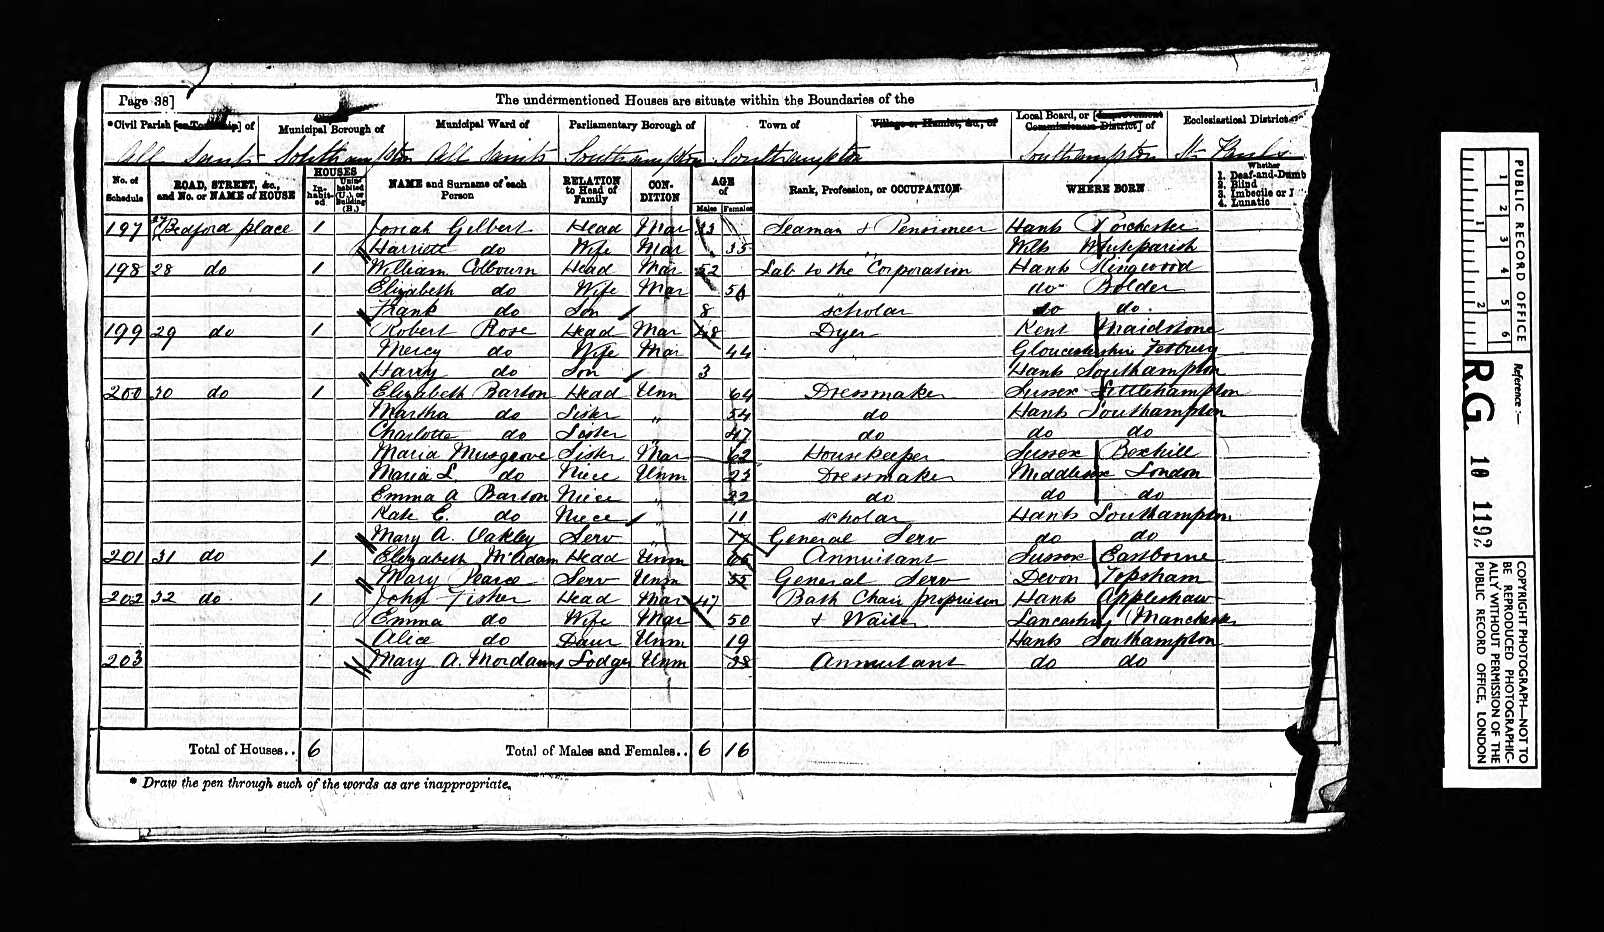 Page 38]
The undermentioned Houses are situate within the Boundaries of the
*Civil Parish [or Township] of Municipal Borough of Municipal Ward of Parliamentary Borough of Town of Village or Hamlet, &c., of Local Board, or [Improvement Commissioners District] of Ecclesiastical District
All Saints Southampton All Saints Southampton Southampton Southampton St Pauls
No. of Schedule ROAD, STREET, &c., and No. or NAME of HOUSE HOUSES Inhabited Uninhabited (U.), or Building (B.) NAME and Surname of each Person RELATION to Head of Family CONDITION AGE of Males Females Rank, Profession, or OCCUPATION WHERE BORN Whether 1. Deaf-and-Dumb 2. Blind 3. Imbecile or I 4. Lunatic
197 27 Bedford place 1 Josiah Gilbert Head Mar 33 Seaman & Pensioneer Hants Porchester
Harriett do Wife Mar 35 " Wilts Whiteparish
198 28 do 1 William Colbourn Head Mar 52 Lab to the Corporation Hants Ringwood
Elizabeth do Wife Mar " do Bolder
Frank do Son 8 scholar do do
199 29 do 1 Robert Rose Head Mar 48 Dyer Kent Maidstone
Mercy do Wife Mar 44 Gloucestershire Tetbury
Harry do Son 3 Hants Southampton
200 30 do 1 Elizabeth Barton Head Unm 64 Dressmaker Sussex Littlehampton
Martha do Sister " 54 do Hants Southampton
Charlotte do Sister " 47 do do do
Maria Musgrove Sister Mar 62 Housekeeper Sussex Bexhill
Maria L do Niece Unm 23 Dressmaker Middlesex London
Emma A Barton Niece " 22 do do do
Kate E. do Niece " 11 scholar Hants Southampton
Mary A. Oakley Serv " 17 General Serv do do
201 31 do 1 Elizabeth McAdam Head Unm 66 Annuitant Sussex Eastborne
Mary Pearce Serv Unm 55 General Serv Devon Topsham
202 32 do 1 John Fisher Head Mar 47 Bath Chair proprietor Hants Appleshaw
Emma do Wife Mar 50 & Waiter Lancashire Manchester
Alice do Daur Unm 19 Hants Southampton
203 Mary A. Lodger Unm 38 Annuitant do do
Total of Houses.. 6 Total of Males and Females.. 6 16
* Draw the pen through such of the words as are inappropriate.
PUBLIC RECORD OFFICE
1 2 3 4 5 6
1 2
Reference :—
R.G. 10 1192
COPYRIGHT PHOTOGRAPH—NOT TO BE REPRODUCED PHOTOGRAPHICALLY WITHOUT PERMISSION OF THE PUBLIC RECORD OFFICE, LONDON